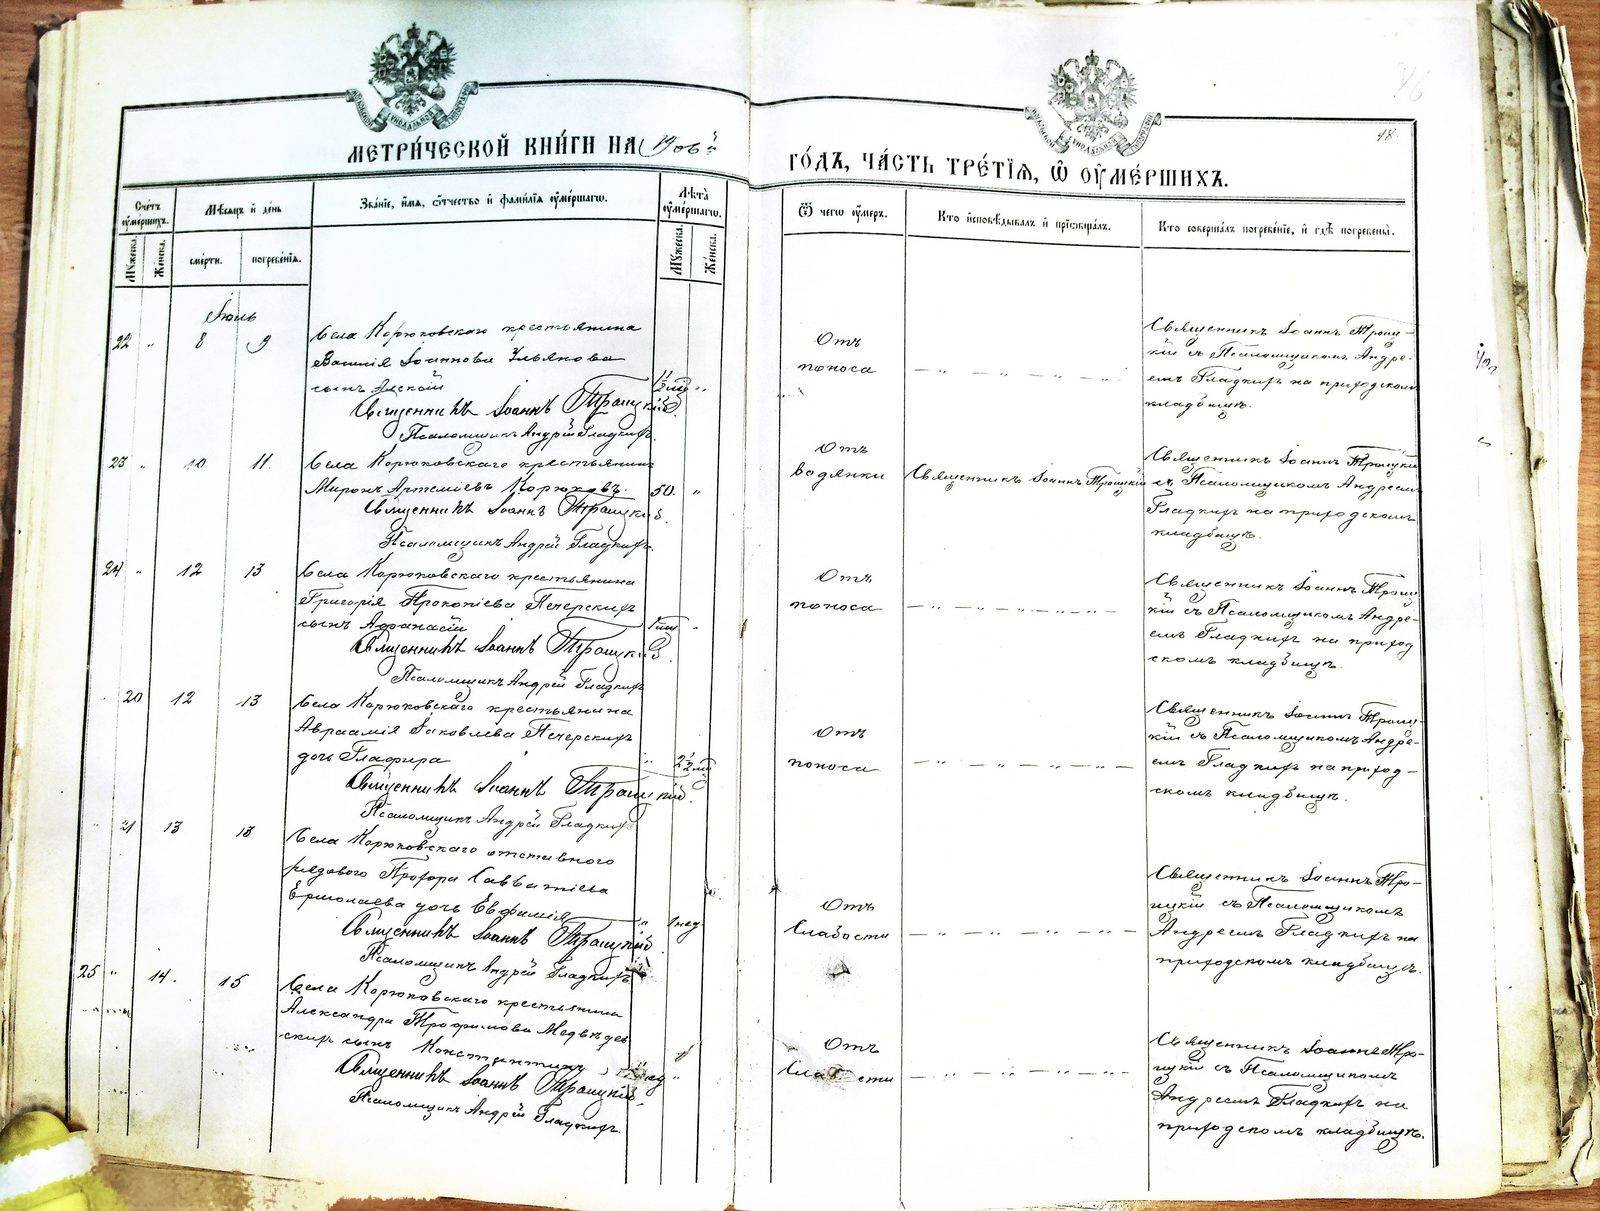 МЕТРИ́ЧЕСКОЙ КНИ́ГИ НА
ГО́ДЪ, ЧА́СТЬ ТРЕ́ТІЯ, Ѿ ОУМЕ́РШИХЪ.
48
Сче́тъ оуме́ршихъ.
Мѣ́сяцъ и де́нь
Зва́ніе, и́мя, ѻ́тчество и фами́лія оуме́ршагѡ.
Лѣта̀ оуме́ршагѡ.
Ѿ чегѡ оу́меръ.
Кто исповѣ́дывалъ и пріѡбща́лъ.
Кто соверша́лъ погребе́ніе, и гдѣ погребены̀.
Му́жеска.
Же́нска.
сме́рти.
погребе́нія.
Му́жеска.
Же́нска.
Іюль
22 " 8 9
Села Корюковскаго крестьянина
Василія Іоаннова Ульянова
сынъ
Священникъ Іоаннъ Троицкій.
Псаломщикъ Андрей Гладкихъ.
Отъ
поноса
Священникъ Іоаннъ Троиц-
кій съ Псаломщикомъ Андре-
емъ Гладкихъ на приходскомъ
кладбищѣ.
23 " 10 11.
Села Корюковскаго крестьянинъ
Миронъ Артеміевъ Корюковъ. 50. "
Священникъ Іоаннъ Троицкій.
Псаломщикъ Андрей Гладкихъ.
Отъ
водянки
Священникъ Іоаннъ Троицкій
Священникъ Іоаннъ Троицкій
съ Псаломщикомъ Андреемъ
Гладкихъ на приходскомъ
кладбищѣ.
24 " 12 13
Села Корюковскаго крестьянина
Григорія Прокопіева Печерскихъ
сынъ Афанасій
Священникъ Іоаннъ Троицкій.
Псаломщикъ Андрей Гладкихъ
Отъ
поноса
Священникъ Іоаннъ Троиц-
кій съ Псаломщикомъ Андре-
емъ Гладкихъ на приход
скомъ кладбищѣ.
20 12 13
Села Корюковскаго крестьянина
Авраамія Іаковлева Печерскихъ
дочь Глафира
Священникъ Іоаннъ Троицкій.
Псаломщикъ Андрей Гладкихъ
Отъ
поноса
Священникъ Іоаннъ Троиц-
кій съ Псаломщикомъ Андре-
емъ Гладкихъ на приход-
скомъ кладбищѣ.
" 21 13 13
Села Корюковскаго отставного
рядового Прохора Савватіева
Ермолаева дочь Евфимія " 1 нед.
Священникъ Іоаннъ Троицкій
Псаломщикъ Андрей Гладкихъ
Отъ
слабости
Священникъ Іоаннъ Тро-
ицкій съ Псаломщикомъ
Андреемъ Гладкихъ на
приходскомъ кладбищѣ.
25 " 14. 15
Села Корюковскаго крестьянина
Александра Трофимова Медвѣдев
скихъ сынъ Константинъ
Священникъ Іоаннъ Троицкій.
Псаломщикъ Андрей Гладкихъ.
Отъ
слабости
Священникъ Іоаннъ Тро-
ицкій съ Псаломщикомъ
Андреемъ Гладкихъ на
приходскомъ кладбищѣ.